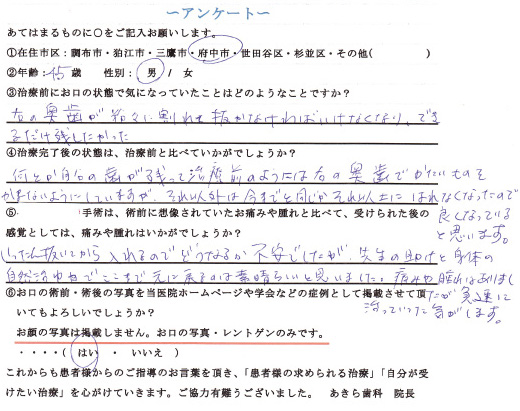 ～アンケート～
あてはまるものに○をご記入お願いします。
①在住市区：調布市・狛江市・三鷹市・府中市・世田谷区・杉並区・その他(　　　　)
②年齢：45 歳　性別：男 / 女
③治療前にお口の状態で気になっていたことはどのようなことですか？
右の奥歯が粉々に割れて抜かなければいけなくなり、でき
るだけ残したかった
④治療完了後の状態は、治療前と比べていかがでしょうか？
何とか自分の歯が残って治療前のようには右の奥歯でかたいものを
かまないようにしていますが、それ以外は今までと同じかそれ以上に はれなくなったので
良くなっている
と思います。
⑤　　　　手術は、術前に想像されていたお痛みや腫れと比べて、受けられた後の
感覚としては、痛みや腫れはいかがでしょうか？
いったん抜いてから入れるのでどうなるか不安でしたが、先生の助けと身体の
自然治ゆ力でここまで元に戻るのは素晴らしいと思いました。痛みや腫れはありまし
たが急速に
治っていった気がします。
⑥お口の術前・術後の写真を当医院ホームページや学会などの症例として掲載させて頂
いてもよろしいでしょうか？
お顔の写真は掲載しません。お口の写真・レントゲンのみです。
・・・・( はい ・ いいえ )
これからも患者様からのご指導のお言葉を頂き、「患者様の求められる治療」「自分が受
けたい治療」を心がけていきます。ご協力有難うございました。　あきら歯科　院長